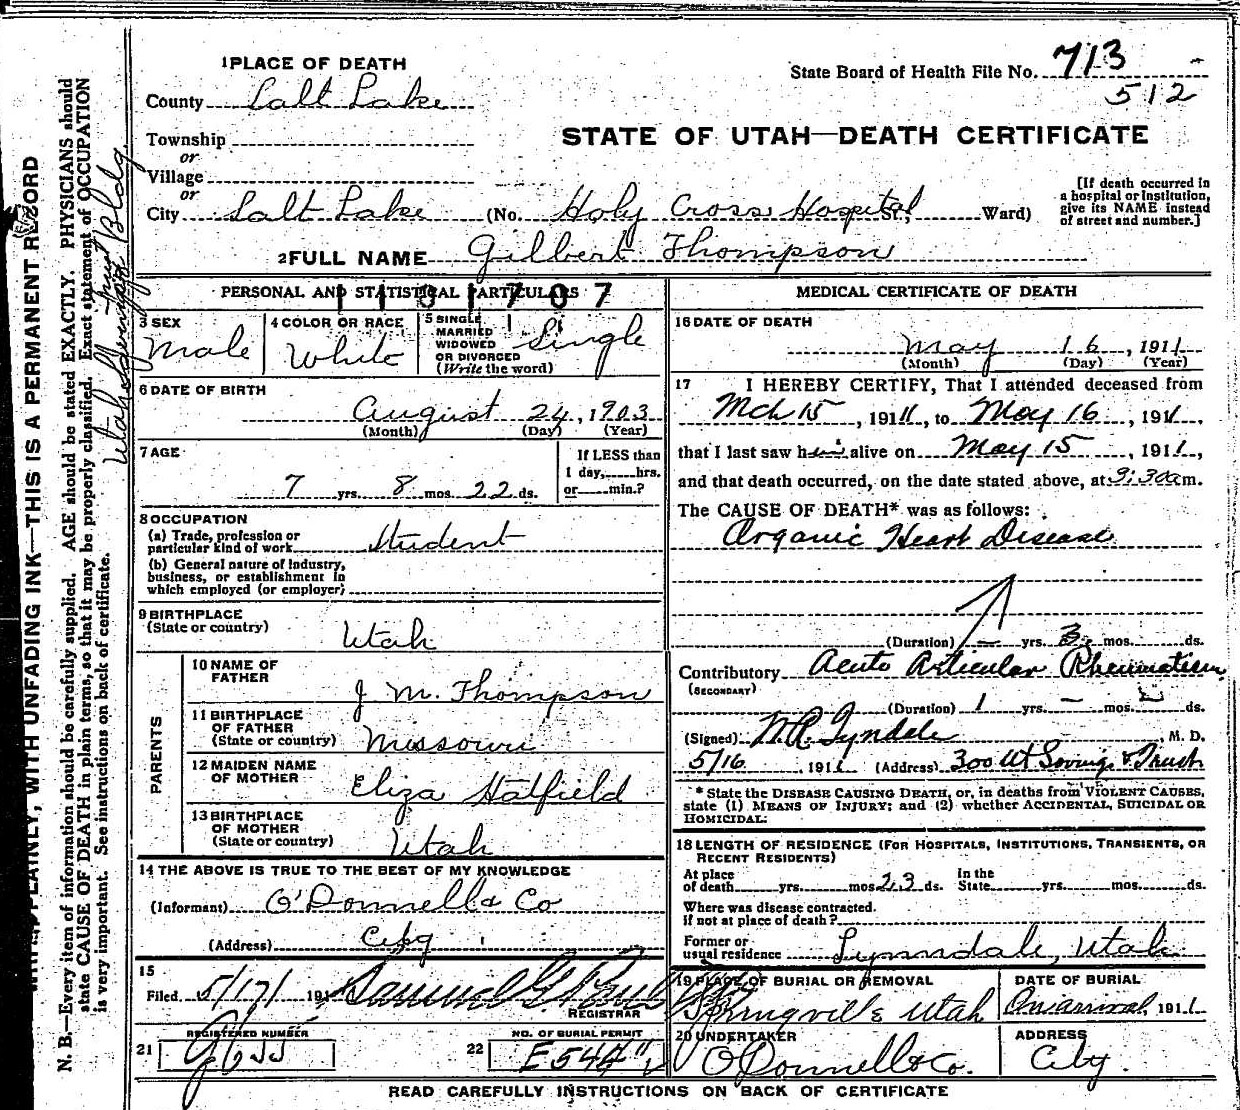 1 PLACE OF DEATH
State Board of Health File No. 713
512
County Salt Lake
STATE OF UTAH—DEATH CERTIFICATE
Township
or
Village
or
City Salt Lake (No. Holy Cross Hospital St., Ward)
[If death occurred in
a hospital or institution,
give its NAME instead
of street and number.]
2 FULL NAME Gilbert Thompson
PERSONAL AND STATISTICAL PARTICULARS
3 SEX
Male
4 COLOR OR RACE
White
5 SINGLE
MARRIED
WIDOWED
OR DIVORCED
(Write the word)
Single
6 DATE OF BIRTH
August 24, 1903
(Month) (Day) (Year)
7 AGE
7 yrs. 8 mos. 22 ds.
If LESS than
1 day, hrs.
or min.?
8 OCCUPATION
(a) Trade, profession or
particular kind of work Student
(b) General nature of industry,
business, or establishment in
which employed (or employer)
9 BIRTHPLACE
(State or country)
Utah
PARENTS
10 NAME OF
FATHER
J M. Thompson
11 BIRTHPLACE
OF FATHER
(State or country)
Missouri
12 MAIDEN NAME
OF MOTHER
Eliza Hatfield
13 BIRTHPLACE
OF MOTHER
(State or country)
Utah
14 THE ABOVE IS TRUE TO THE BEST OF MY KNOWLEDGE
(Informant) O'Donnell & Co
(Address) City
15
Filed 5/17/ 191
REGISTRAR
REGISTERED NUMBER
21
NO. OF BURIAL PERMIT
22
MEDICAL CERTIFICATE OF DEATH
16 DATE OF DEATH
May 16, 1911
(Month) (Day) (Year)
17 I HEREBY CERTIFY, That I attended deceased from
Mch 15, 1911, to May 16, 1911,
that I last saw him alive on May 15, 1911,
and that death occurred, on the date stated above, at 9:30 a m.
The CAUSE OF DEATH* was as follows:
Organic Heart Disease
(Duration) — yrs. 3 mos. ds.
Contributory Acute Articular Rheumatism
(SECONDARY)
(Duration) 1 yrs. — mos. ds.
(Signed) Tyndale, M. D.
5/16, 1911 (Address) 300 Ut Savings & Trust
* State the DISEASE CAUSING DEATH, or, in deaths from VIOLENT CAUSES,
state (1) MEANS OF INJURY; and (2) whether ACCIDENTAL, SUICIDAL OR
HOMICIDAL.
18 LENGTH OF RESIDENCE (FOR HOSPITALS, INSTITUTIONS, TRANSIENTS, OR
RECENT RESIDENTS)
At place
of death yrs. mos. 23 ds.
In the
State yrs. mos. ds.
Where was disease contracted,
if not at place of death?
Former or
usual residence Lynndale, Utah
19 PLACE OF BURIAL OR REMOVAL
Springville Utah
DATE OF BURIAL
On arrival, 1911
20 UNDERTAKER
O'Donnell & Co.
ADDRESS
City.
READ CAREFULLY INSTRUCTIONS ON BACK OF CERTIFICATE
PLAINLY, WITH UNFADING INK—THIS IS A PERMANENT RECORD
N. B.—Every item of information should be carefully supplied. AGE should be stated EXACTLY. PHYSICIANS should
state CAUSE OF DEATH in plain terms, so that it may be properly classified. Exact statement of OCCUPATION
is very important. See instructions on back of certificate.